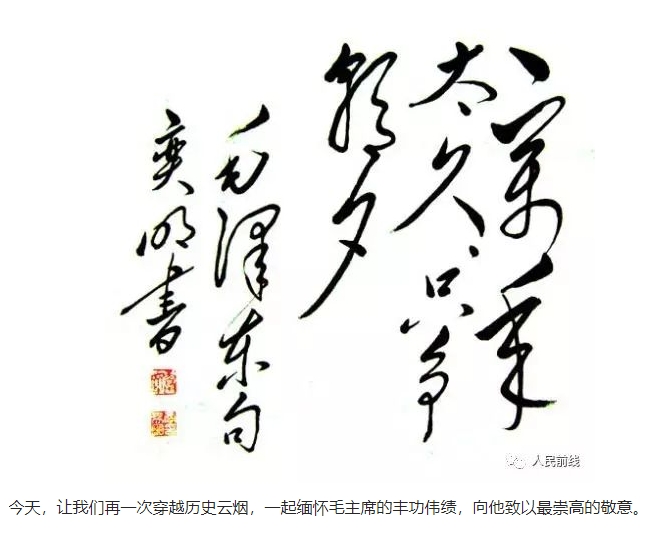 一萬年
太久只争
朝夕
毛澤东句
奕明書
人民前线
今天，让我们再一次穿越历史云烟，一起缅怀毛主席的丰功伟绩，向他致以最崇高的敬意。